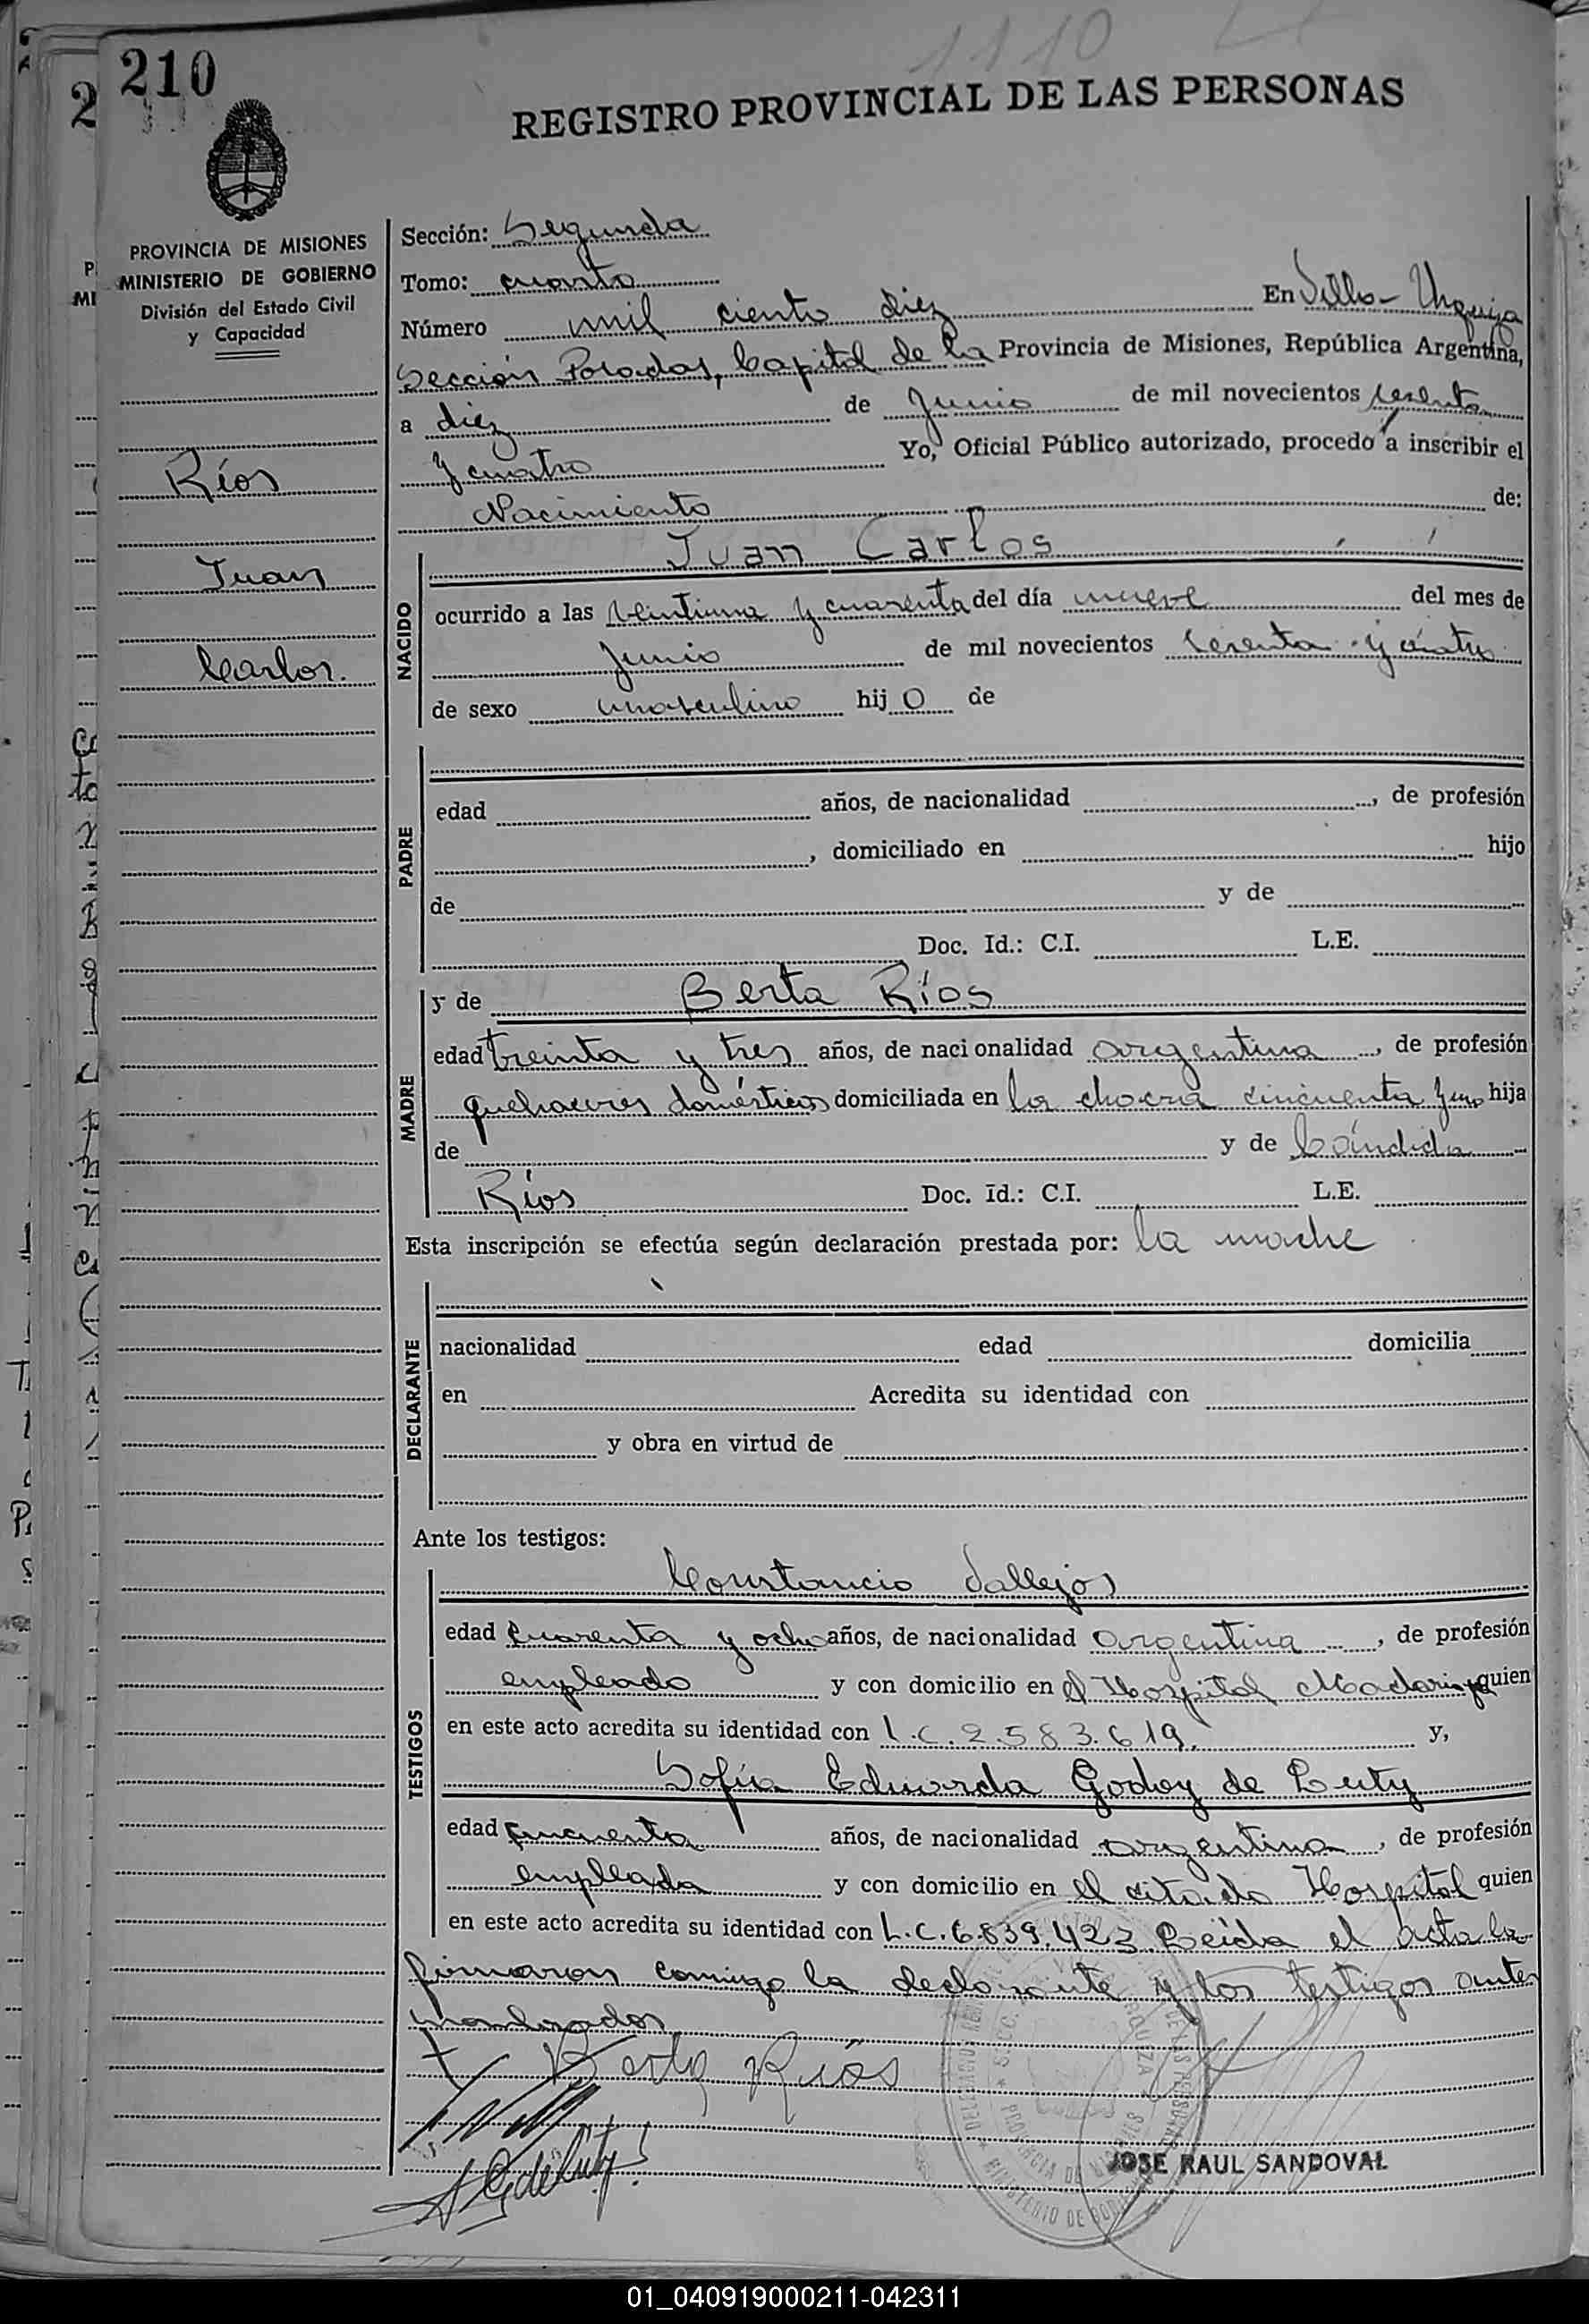 1110
210
REGISTRO PROVINCIAL DE LAS PERSONAS
PROVINCIA DE MISIONES
MINISTERIO DE GOBIERNO
División del Estado Civil
y Capacidad
Ríos
Juan
Carlos.
Sección: Segunda
Tomo: cuarto
Número mil ciento diez En Villa - Urquiza
Sección Posadas, Capital de la Provincia de Misiones, República Argentina,
a diez de Junio de mil novecientos sesenta
y cuatro Yo, Oficial Público autorizado, procedo a inscribir el
Nacimiento de:
NACIDO
Juan Carlos
ocurrido a las veintiuna y cuarenta del día nueve del mes de
Junio de mil novecientos sesenta y cuatro
de sexo masculino hijo de
PADRE
edad años, de nacionalidad , de profesión
, domiciliado en hijo
de y de
Doc. Id.: C.I. L.E.
MADRE
y de Berta Ríos
edad treinta y tres años, de nacionalidad argentina , de profesión
quehaceres domésticos domiciliada en la chacra cincuenta y uno hija
de y de Cándida
Ríos Doc. Id.: C.I. L.E.
Esta inscripción se efectúa según declaración prestada por: la madre
DECLARANTE
nacionalidad edad domicilia
en Acredita su identidad con
y obra en virtud de
Ante los testigos:
TESTIGOS
Constancio Vallejos
edad cuarenta y ocho años, de nacionalidad argentina , de profesión
empleado y con domicilio en el Hospital Madariaga quien
en este acto acredita su identidad con L.C. 2.583.619. y,
Sofía Eduarda Godoy de Luty
edad cincuenta años, de nacionalidad argentina , de profesión
empleada y con domicilio en el citado Hospital quien
en este acto acredita su identidad con L.C. 6.839.423. Leída el acta la
firmaron conmigo la declarante y los testigos antes
nombrados
Berta Ríos
SGdeLuty
JOSE RAUL SANDOVAL
01_040919000211-042311